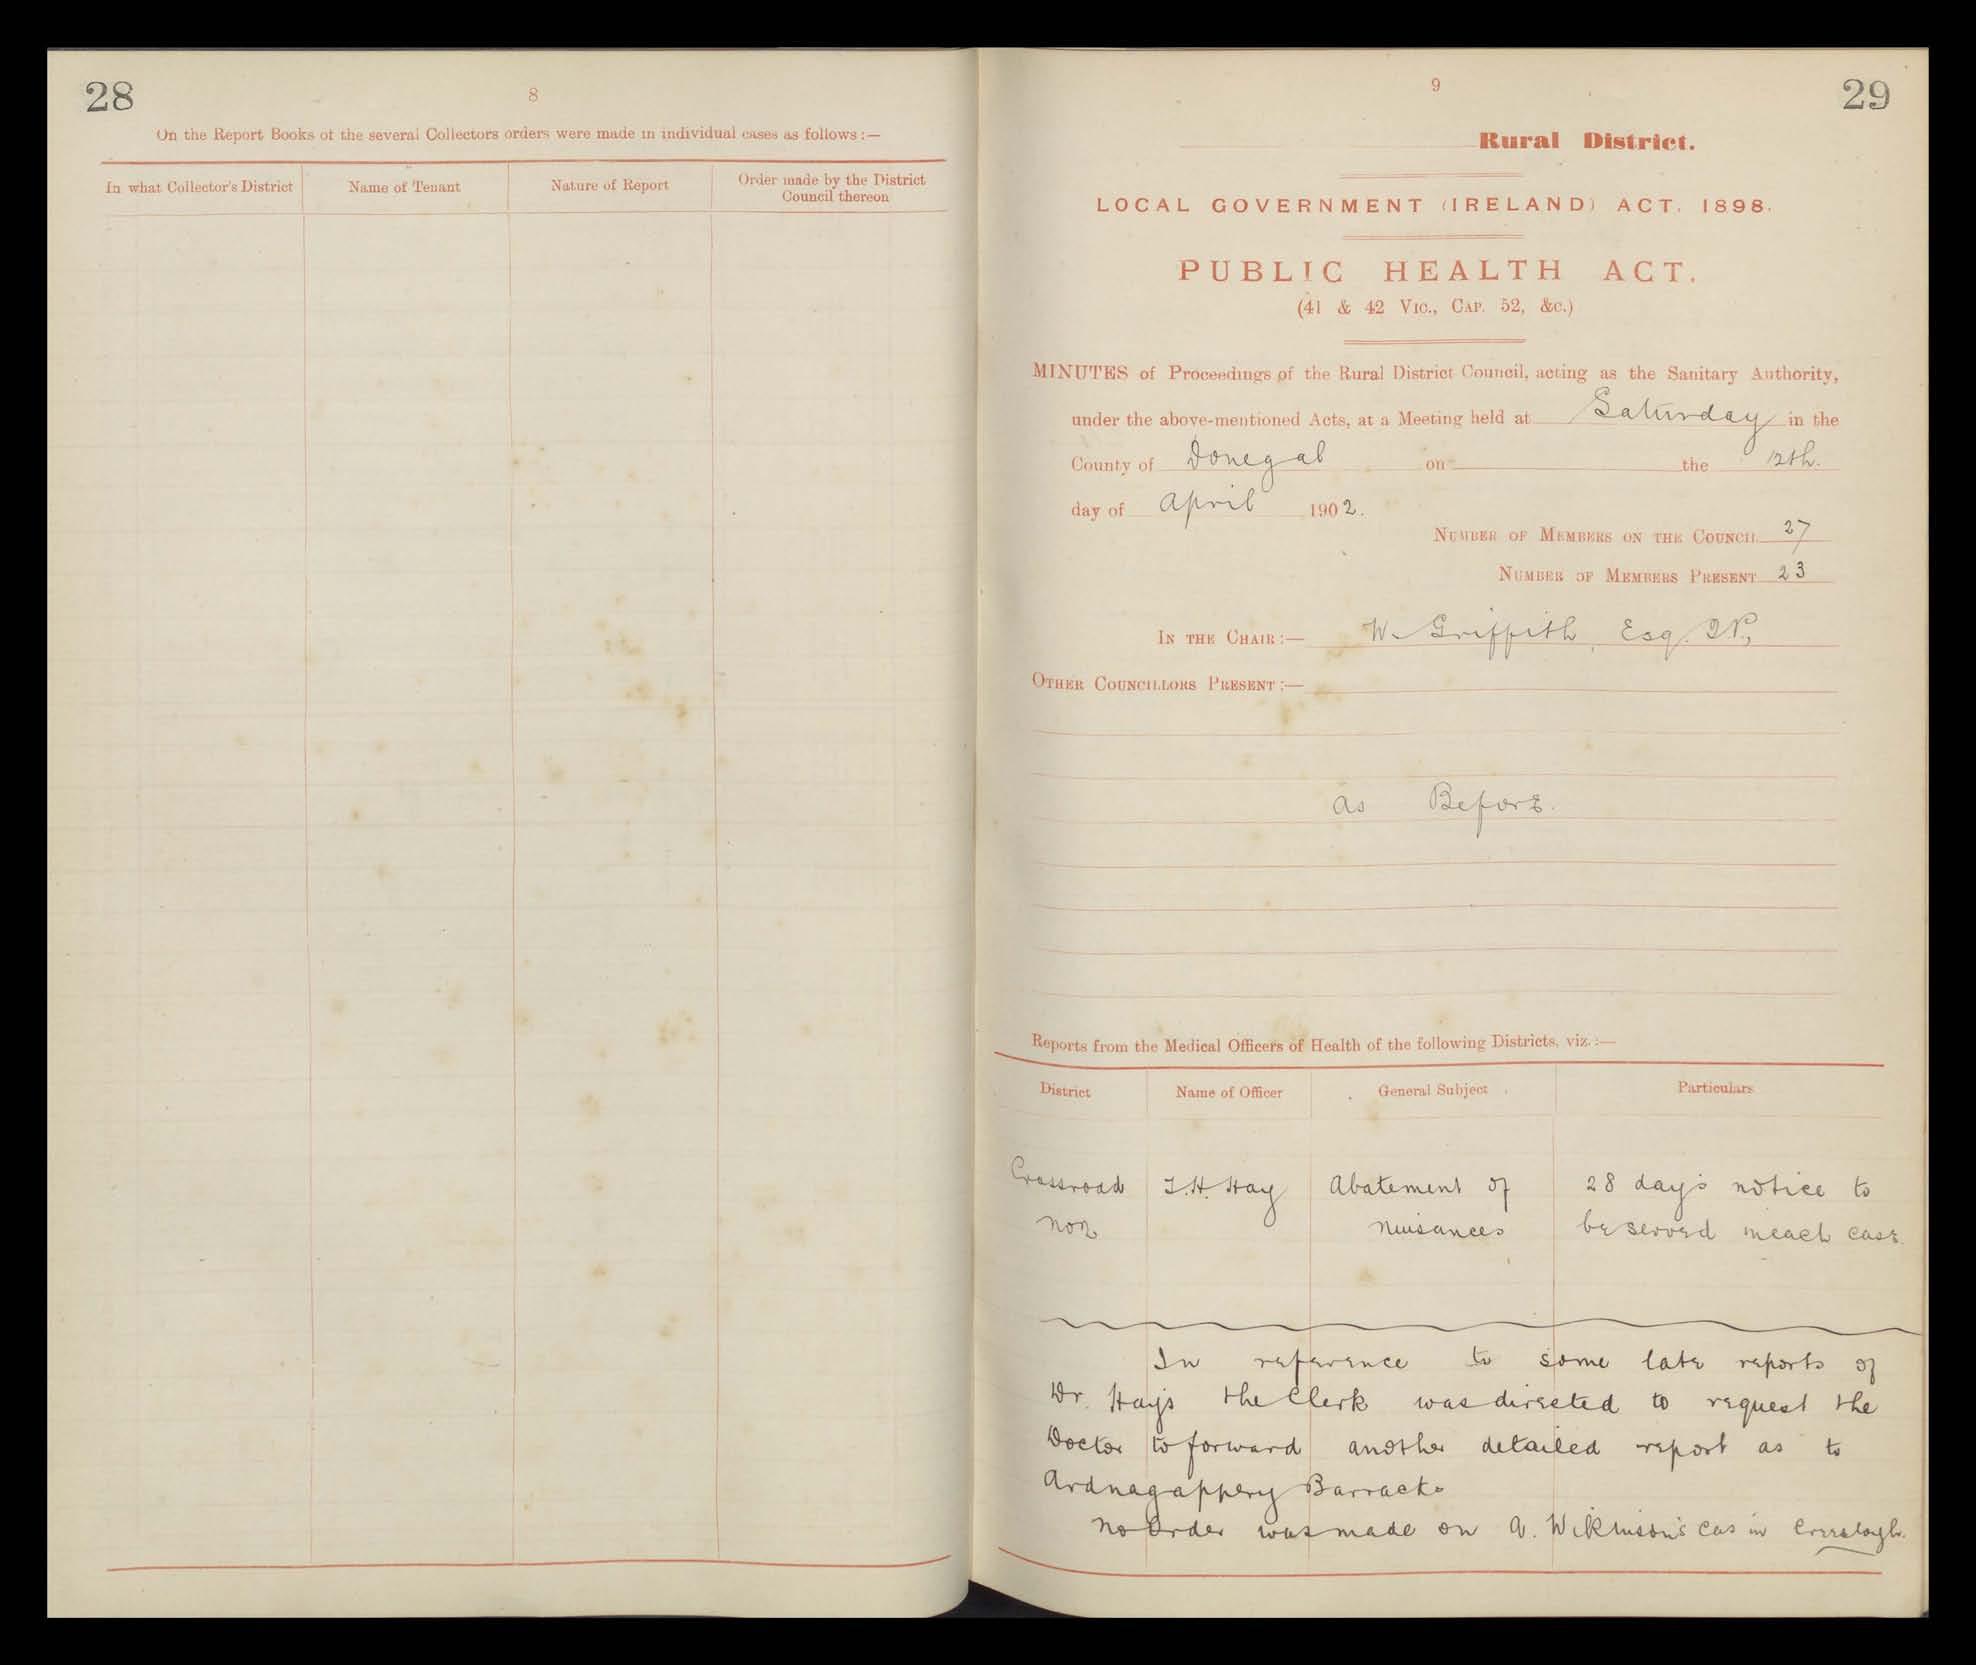 28
8
On the Report Books of the several Collectors orders were made in individual cases as follows :—
In what Collector's District
Name of Tenant
Nature of Report
Order made by the District
Council thereon
9
29
Rural District.
LOCAL GOVERNMENT (IRELAND) ACT, 1898.
PUBLIC HEALTH ACT.
(41 & 42 Vic., Cap. 52, &c.)
MINUTES of Proceedings of the Rural District Council, acting as the Sanitary Authority,
under the above-mentioned Acts, at a Meeting held at Saturday in the
County of Donegal on the 12th.
day of April 1902.
Number of Members on the Council 27
Number of Members Present 23
In the Chair :— W. Griffith, Esq. J.P.,
Other Councillors Present :—
as Before.
Reports from the Medical Officers of Health of the following Districts, viz. :—
District
Name of Officer
General Subject
Particulars
Crossroad
No 2
Abatement of
Nuisances
28 days notice to
be served in each case.
In reference to some late reports of
Dr. Hay's the Clerk was directed to request the
Doctor to forward another detailed report as to
Ardnagappery Barracks
No Order was made on A. Wilkinson's Cas in Creeslough.